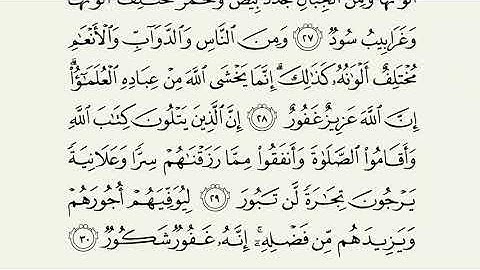 أَلۡوَٰنُهَا وَمِنَ ٱلۡجِبَالِ جُدَدُۢ بِيضٞ وَحُمۡرٞ مُّخۡتَلِفٌ أَلۡوَٰنُهَا
وَغَرَابِيبُ سُودٞ ٢٧ وَمِنَ ٱلنَّاسِ وَٱلدَّوَآبِّ وَٱلۡأَنۡعَٰمِ
مُخۡتَلِفٌ أَلۡوَٰنُهُۥ كَذَٰلِكَۗ إِنَّمَا يَخۡشَى ٱللَّهَ مِنۡ عِبَادِهِ ٱلۡعُلَمَٰٓؤُاْۗ
إِنَّ ٱللَّهَ عَزِيزٌ غَفُورٌ ٢٨ إِنَّ ٱلَّذِينَ يَتۡلُونَ كِتَٰبَ ٱللَّهِ
وَأَقَامُواْ ٱلصَّلَوٰةَ وَأَنفَقُواْ مِمَّا رَزَقۡنَٰهُمۡ سِرّٗا وَعَلَانِيَةٗ
يَرۡجُونَ تِجَٰرَةٗ لَّن تَبُورَ ٢٩ لِيُوَفِّيَهُمۡ أُجُورَهُمۡ
وَيَزِيدَهُم مِّن فَضۡلِهِۦٓۚ إِنَّهُۥ غَفُورٞ شَكُورٞ ٣٠